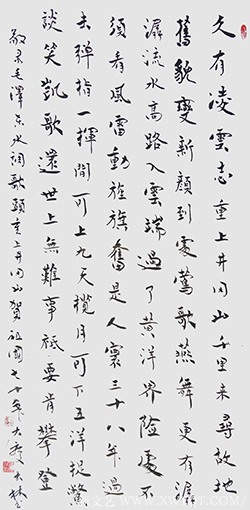 久有凌雲志重上井冈山千里来尋故地
舊貌變新顔到處鶯歌燕舞更有潺
潺流水高路入雲端過了黄洋界險處不
須看風雷動旌旗奮是人寰三十八年過
去弹指一揮間可上九天攬月可下五洋捉鱉
談笑凱歌還世上無難事祗要肯攀登
敬录毛澤东水调歌頭重上井冈山贺祖國七十年大慶